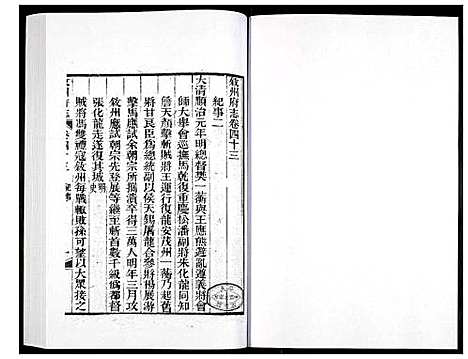 敘州府志卷四十三
紀事二
大清順治元年明總督樊一蘅與王應熊避亂遵義將會
師大舉會巡撫馬乾復重慶松潘副將朱化龍同知
詹天顏擊斬賊將王運行復龍安茂州一蘅乃起舊
將甘良臣爲總統副以侯天錫屠龍合參將楊展游
擊馬應試余朝宗所攜潰卒得三萬人明年三月攻
敘州應試朝宗先登展等繼至斬首數千級僞都督
張化龍走遂復其城 明史
賊將馮雙禮寇敘州每戰輒敗孫可望以大眾援之